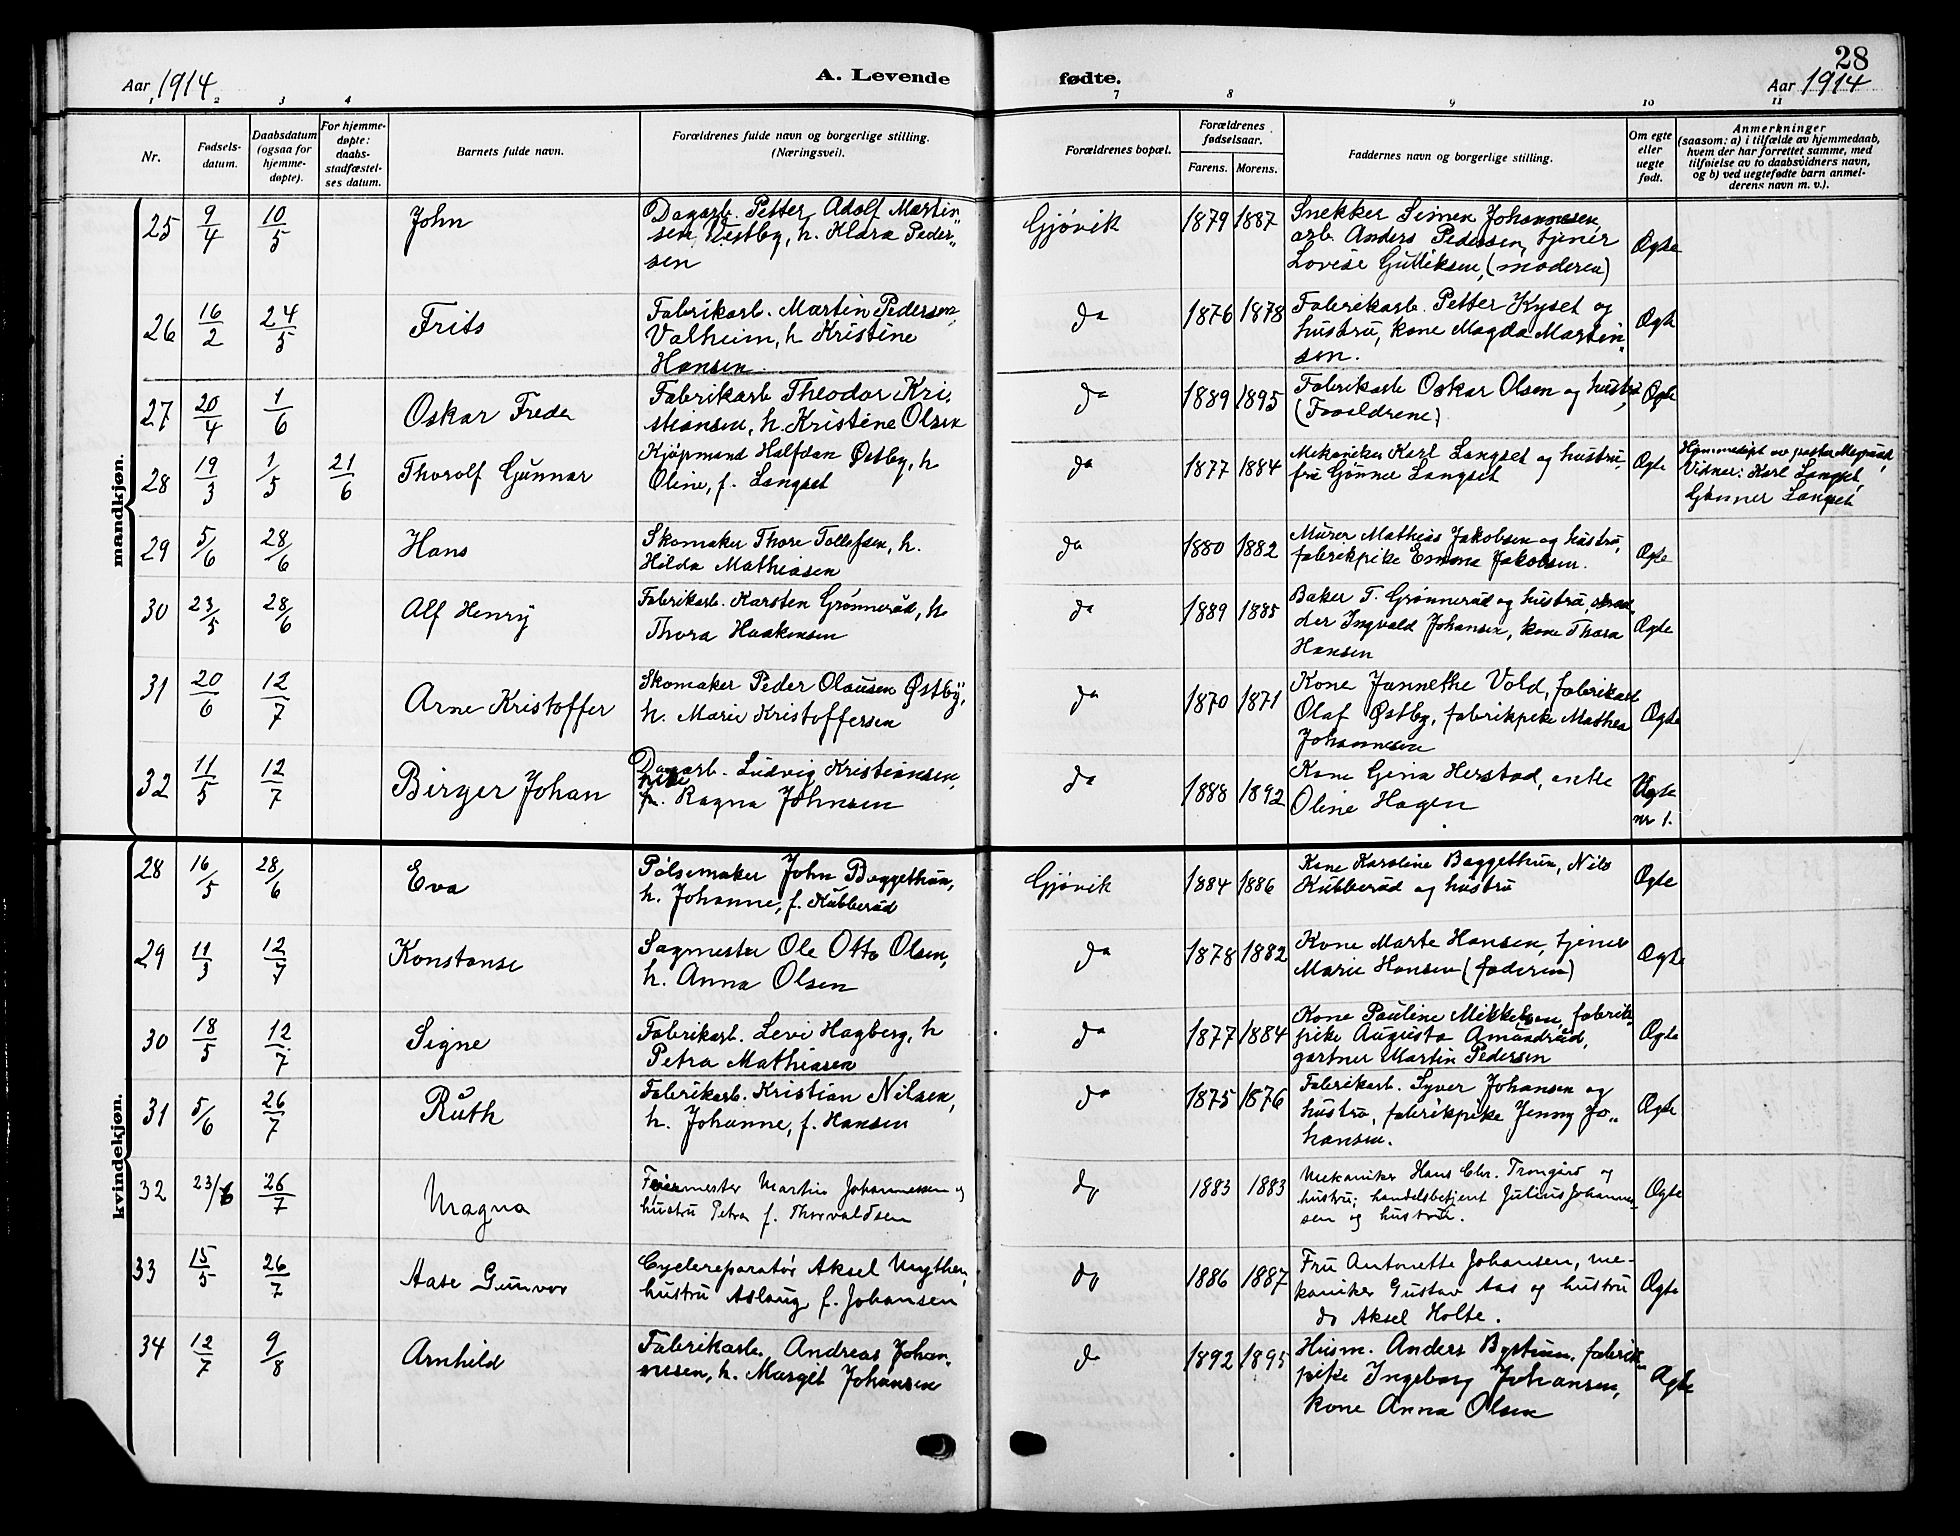 28
Aar 1914
A. Levende
fødte.
Aar 1914
1 2 3 4 7 8 9 10 11
Nr.
Fødsels-
datum.
Daabsdatum
(ogsaa for
hjemme-
døpte).
For hjemme-
døpte:
daabs-
stadfæstel-
ses datum.
Barnets fulde navn.
Forældrenes fulde navn og borgerlige stilling.
(Næringsvei).
Forældrenes bopæl.
Forældrenes
fødselsaar.
Farens. Morens.
Faddernes navn og borgerlige stilling.
Om egte
eller
uegte
født.
Anmerkninger
(saasom: a) i tilfælde av hjemmedaab,
hvem der har forrettet samme, med
tilføielse av to daabsvidners navn,
og b) ved uegtefødte barn anmel-
derens navn m. v.).
mandkjøn.
25 9/4 10/5 John
Dagarb. Petter Adolf Martin
sen Vestby, h. Klara Peder-
sen
Gjøvik 1879 1887
Snekker Simen Johannesen,
arb. Anders Pedersen, tjener
Lovise Gulliksen, (moderen)
Ægte
26 16/2 24/5 Frits
Fabrikarb. Martin Pedersen
Valheim, h Kristine
Hansen
da 1876 1878
Fabrikarb. Petter Kyset og
hustru, kone Magda Martin
sen.
Ægte
27 20/4 1/6 Oskar Freder
Fabrikarb Theodor Kri-
stiansen, h. Kristine Olsen
da 1889 1895
Fabrikarb Oskar Olsen og hustru
(Forældrene)
Ægte
28 19/3 1/5 21/6 Thorolf Gunnar
Kjøpmand Halfdan Østby, h
Oline, f. Langset
da 1877 1884
Mekaniker Karl Langset og hustru,
fru Gønner Langset
Ægte
Hjemmedøpt av pastor
Vidner: Karl Langset,
Gønner Langset
29 5/6 28/6 Hans
Skomaker Thore Tollefsen, h.
Hilda Mathiasen
da 1880 1882
Murer Mathias Jakobsen og hustru,
fabrikpike Emma Jakobsen.
Ægte
30 23/5 28/6 Alf Henry
Fabrikarb. Karsten Grønnerud, h
Thora Haakensen
da 1889 1885
Baker T. Grønnerud og hustru, skræd-
der Ingvald Johansen, kone Thora
Hansen
Ægte
31 20/6 12/7 Arne Kristoffer
Skomaker Peder Olausen Østby,
h. Marie Kristoffersen
da 1870 1871
Kone Jannethe Vold, fabrikarb
Olaf Østby, fabrikpike Mathea
Johannesen
Ægte
32 11/5 12/7 Birger Johan
Dagarb. Ludvig Kristiansen,
pike Ragna Johnsen
da 1888 1892
Kone Gina Herstad, enke
Oline Hagen
Uægte
nr 1.
kvindekjøn.
28 16/5 28/6 Eva
Pølsemaker John Baggethun,
h. Johanne, f. Kubberud
Gjøvik 1884 1886
Kone Karoline Baggethun, Nils
Kubberud og hustru
Ægte
29 11/3 12/7 Konstanse
Sagmester Ole Otto Olsen,
h. Anna Olsen
da 1878 1882
Kone Marte Hansen, tjener
Marie Hansen (faderen)
Ægte
30 18/5 12/7 Signe
Fabrikarb. Levi Hagberg, h
Petra Mathiasen
da 1877 1884
Kone Pauline Mikkelsen, fabrik-
pike Augusta Amundrud,
gartner Martin Pedersen
Ægte
31 5/6 26/7 Ruth
Fabrikarb. Kristian Nilsen,
h. Johanne, f. Hansen
da 1875 1876
Fabrikarb. Syver Johansen og
hustru, fabrikpike Jenny Jo-
hansen.
Ægte
32 23/6 26/7 Magna
Feiermester Martin Johannessen og
hustru Petra f. Thorvaldsen
do 1883 1883
Mekaniker Hans Chr. Trongård og
hustru; handelsbetjent Julius Johannes-
sen og hustru.
Ægte
33 15/5 26/7 Aase Gunvor
Cyclereparatør Aksel Mythen,
hustru Aslaug, f. Johansen
do 1886 1887
Fru Antonette Johansen, me-
kaniker Gustav Aas og hustru
do Aksel Holte.
Ægte
34 12/7 9/8 Arnhild
Fabrikarb. Andreas Johan-
nesen, h. Margit Johansen
do 1892 1895
Husm. Anders Bystuen, fabrik-
pike Ingeborg Johansen,
kone Anna Olsen
Ægte